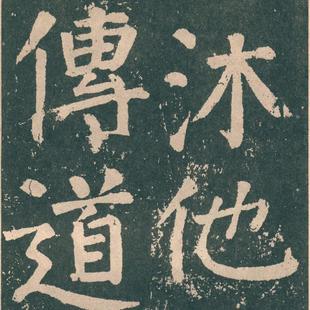 沐他
傳道